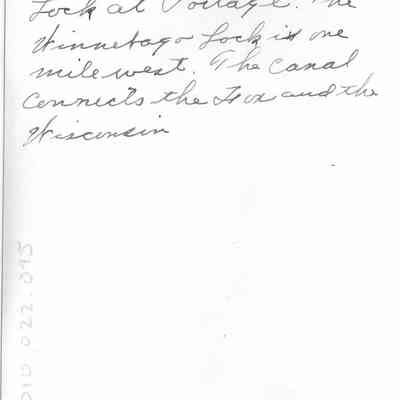 Lock at Portage. The
Winnebago Lock is one
mile west. The canal
connects the Fox and the
Wisconsin
010 022.095